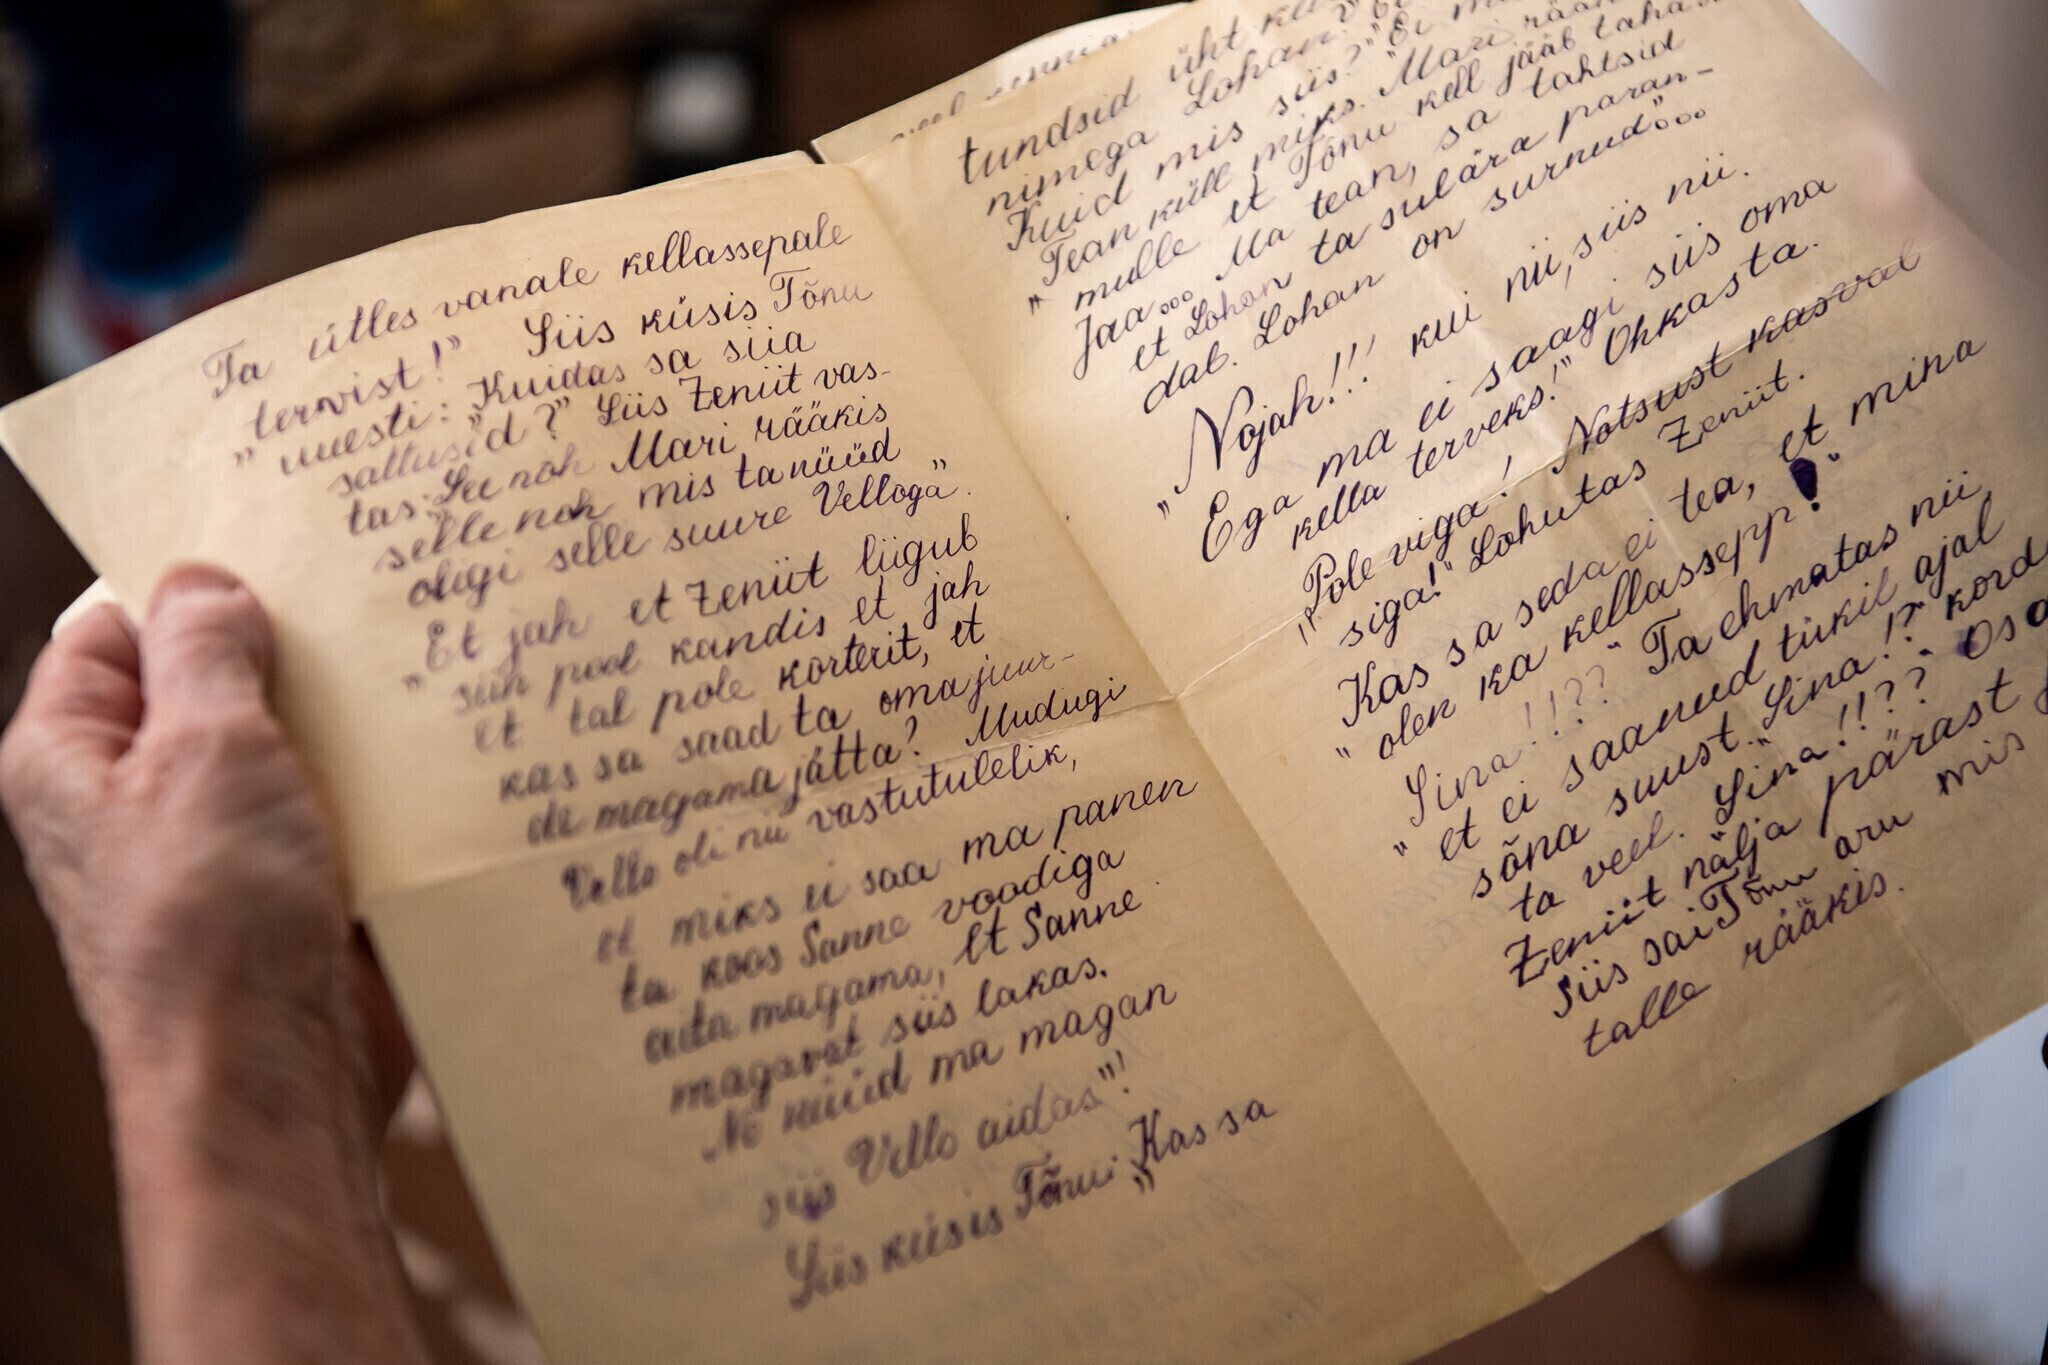 Ta ütles vanale kellassepale
tervist!" Siis küsis Tõnu
" uuesti: "Kuidas sa siia
sattusid?" Siis Zeniit vas-
tas: "See noh Mari rääkis
selle noh mis ta nüüd
oligi selle suure Velloga".
"Et jah et Zeniit liigub
siin pool kandis et jah
et tal pole korterit, et
kas sa saad ta oma juur-
de magama jätta? Muidugi
Vello oli nii vastutulelik,
et miks ei saa ma panen
ta koos Sanne voodiga
aita magama, et Sanne
magavat siis lakas.
No nüüd ma magan
siis Vello aidas"!
Siis küsis Tõnu: "Kas sa
tundsid üht
nimega Lohan?
Kuid mis siis?" "Ei
"Tean küll miks. Mari
mulle et Tõnu kell jääb
Jaa... Ma tean, sa tahtsid
et Lohan ta sulära paran-
dab. Lohan on surnud"...
"Nojah!!! kui nii, siis nii.
Ega ma ei saagi siis oma
kella terveks!" Ohkasta.
"Pole viga! Notsust kasvab
siga!" Lohutas Zeniit.
Kas sa seda ei tea, et mina
" olen ka kellassepp!"
"Sina!!??" Ta ehmatas nii
" et ei saanud tükil ajal
sõna suust. "Sina!?" kord
ta veel. "Sina!!??" Osa
Zeniit nälja pärast
Siis sai Tõnu aru mis
talle rääkis.